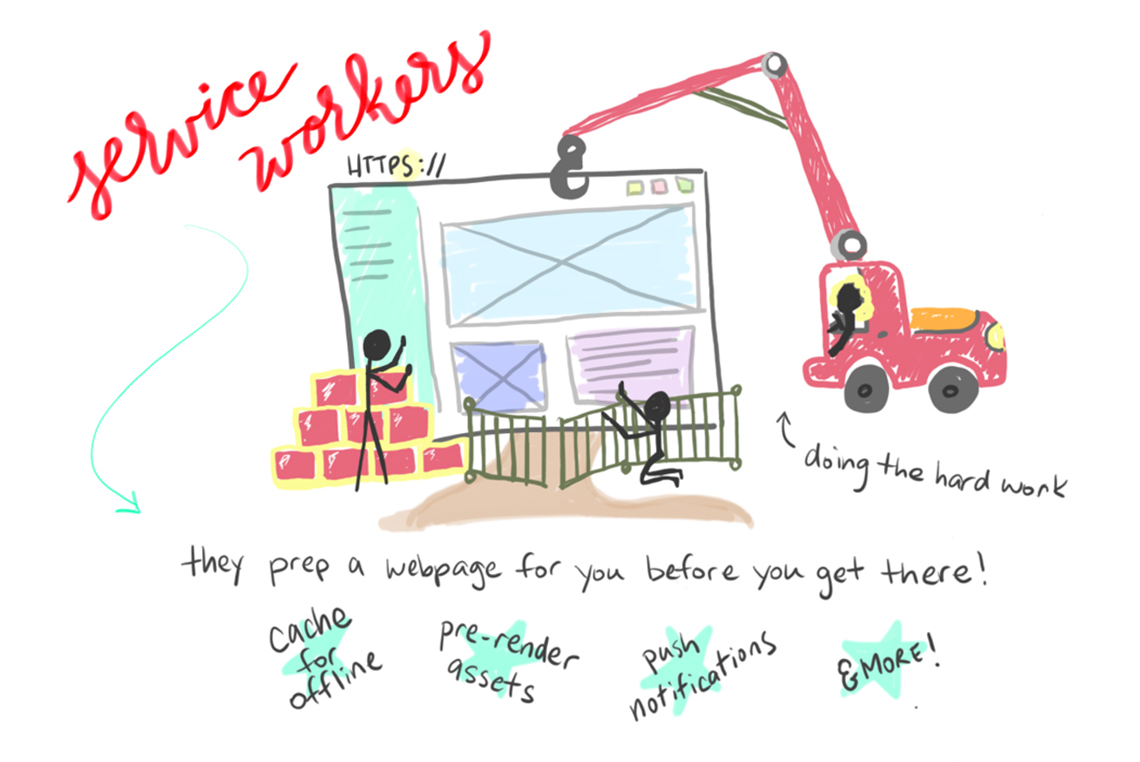 service
workers
HTTPS://
doing the hard work
they prep a webpage for you before you get there!
cache
for
offline
pre-render
assets
push
notifications
& MORE!